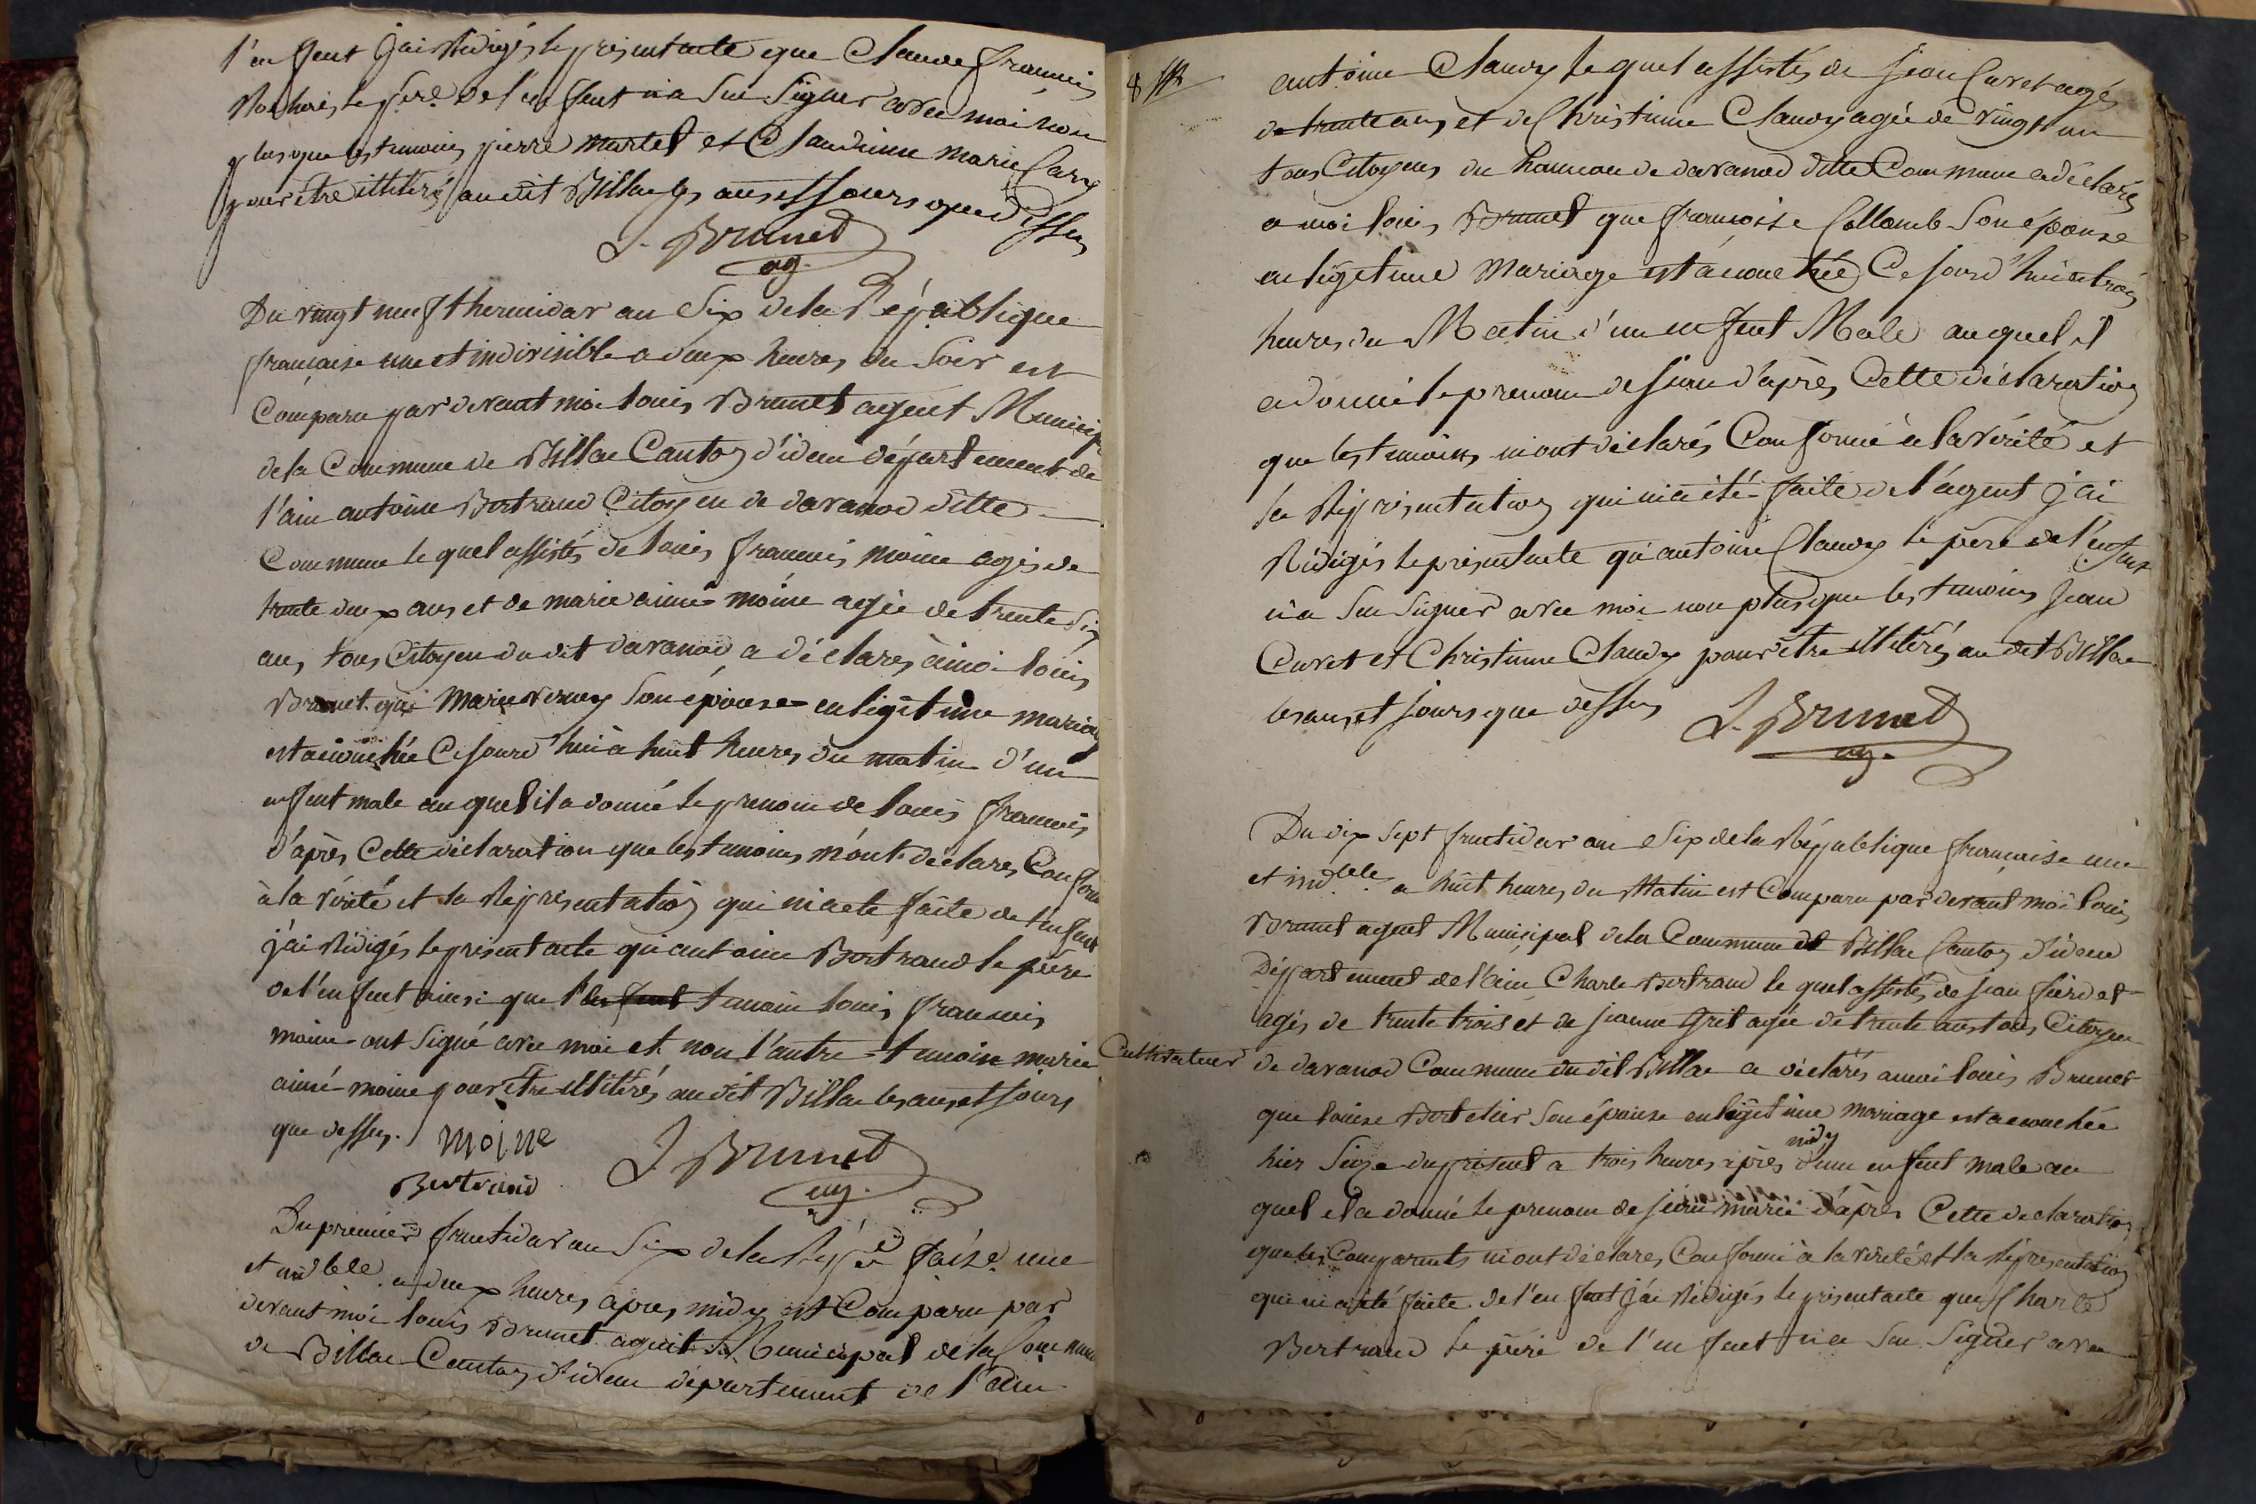 l'enfent jai Rédigés le présent acte que Claude françois
le pere de l'enfent na Sue Signer avec moi non
plus que les temoins pierre martel et Claudinne marie
pour être illitérés au dit Billac les ans et Jours que dessus
L. Brunet
ag.
Du vingt neuf thermidor an Six de la République
française une et indivisible a deux heures du Soir est
Comparu par devant moi louis Brunet agent Municip
de la Commune de Billac Canton d'idem département de
l'ain antoine Bertrand Citoyen de davanod ditte
Commune le quel assistés de louis francois moine agés de
trente deux ans et de marie aimé moine agée de trente Six
ans, tous Citoyen du dit davanod a déclarés à moi louis
Brunet que Marie Son épouse en ligétime mariag
est acouchée Ce jourd'hui à huit heures du matin d'un
enfent male au quel il a donné le prenom de louis francois
d'après Cette déclaration que les temoins m'ont déclares Conforme
à la vérité et la Représentation qui m'a eté faite de l'enfent
j'ai Rédigés le present acte qu'antoine Bertrand le père
de l'enfent ainsi que l'enfent temoin louis francois
moine ont Signé avec moi et non l'autre temoin marie
aimé moine pour être illitérés au dit Billac les ans et Jours
que dessus. moine
L. Brunet
Bertrand
ag.
Du premier fructidor an Six de la Rep.e faise une
et indble a deux heures apres midy est Comparu par
devant moi louis Brunet agent Municipal de la Commune
de Billac Canton d'idem département de l'ain
8
antoine Claudy le quel assistés de jean Curet agés
de trente ans et de Christinne Claudy agée de vingt un
tous Citoyens du hameau de davanod ditte Commune a déclarés
a moi louis Brunet que françoise Collomb Son épouse
en ligétime Mariage est acouchée Ce jourd'hui a trois
heures du Matin d'un enfent Male au quel il
a donné le prenom de jean d'après Cette déclaration
que les temoins m'ont déclarés Conforme à la vérité et
la Représentation qui m'a été faite de l'agent j'ai
Rédigés le present acte qu'antoine Claudy le père de l'enfent
n'a Sue Signer avec moi non plus que les temoins Jean
Curet et Christinne Claudy pour être illitérés au dit Billac
les ans et Jours que dessus
L. Brunet
ag.
Du dix Sept fructidor an Six de la République française une
et indble a huit heures du Matin est Comparu par devant moi louis
Brunet agent Municipal de la Commune de Billac Canton d'idem
Département de l'ain Charle Bertrand le quel assistés de jean
agés de trente trois et de jeanne agée de trente ans tous Citoyen
Cultivateur de davanod Commune du dit Billac a déclarés a moi louis Brunet
que louise Son épouse en légétime mariage est acouchée
hier Seize du présent a trois heures après midy d'une enfent male au
quel il a donné le prenom de jean marie d'après Cette déclaration
que les Comparants m'ont déclares Conforme à la vérité et la Représentation
qui m'a été faite de l'enfent j'ai Rédigés le présent acte que Charle
Bertrand le père de l'enfent n'a Sue Signer avec